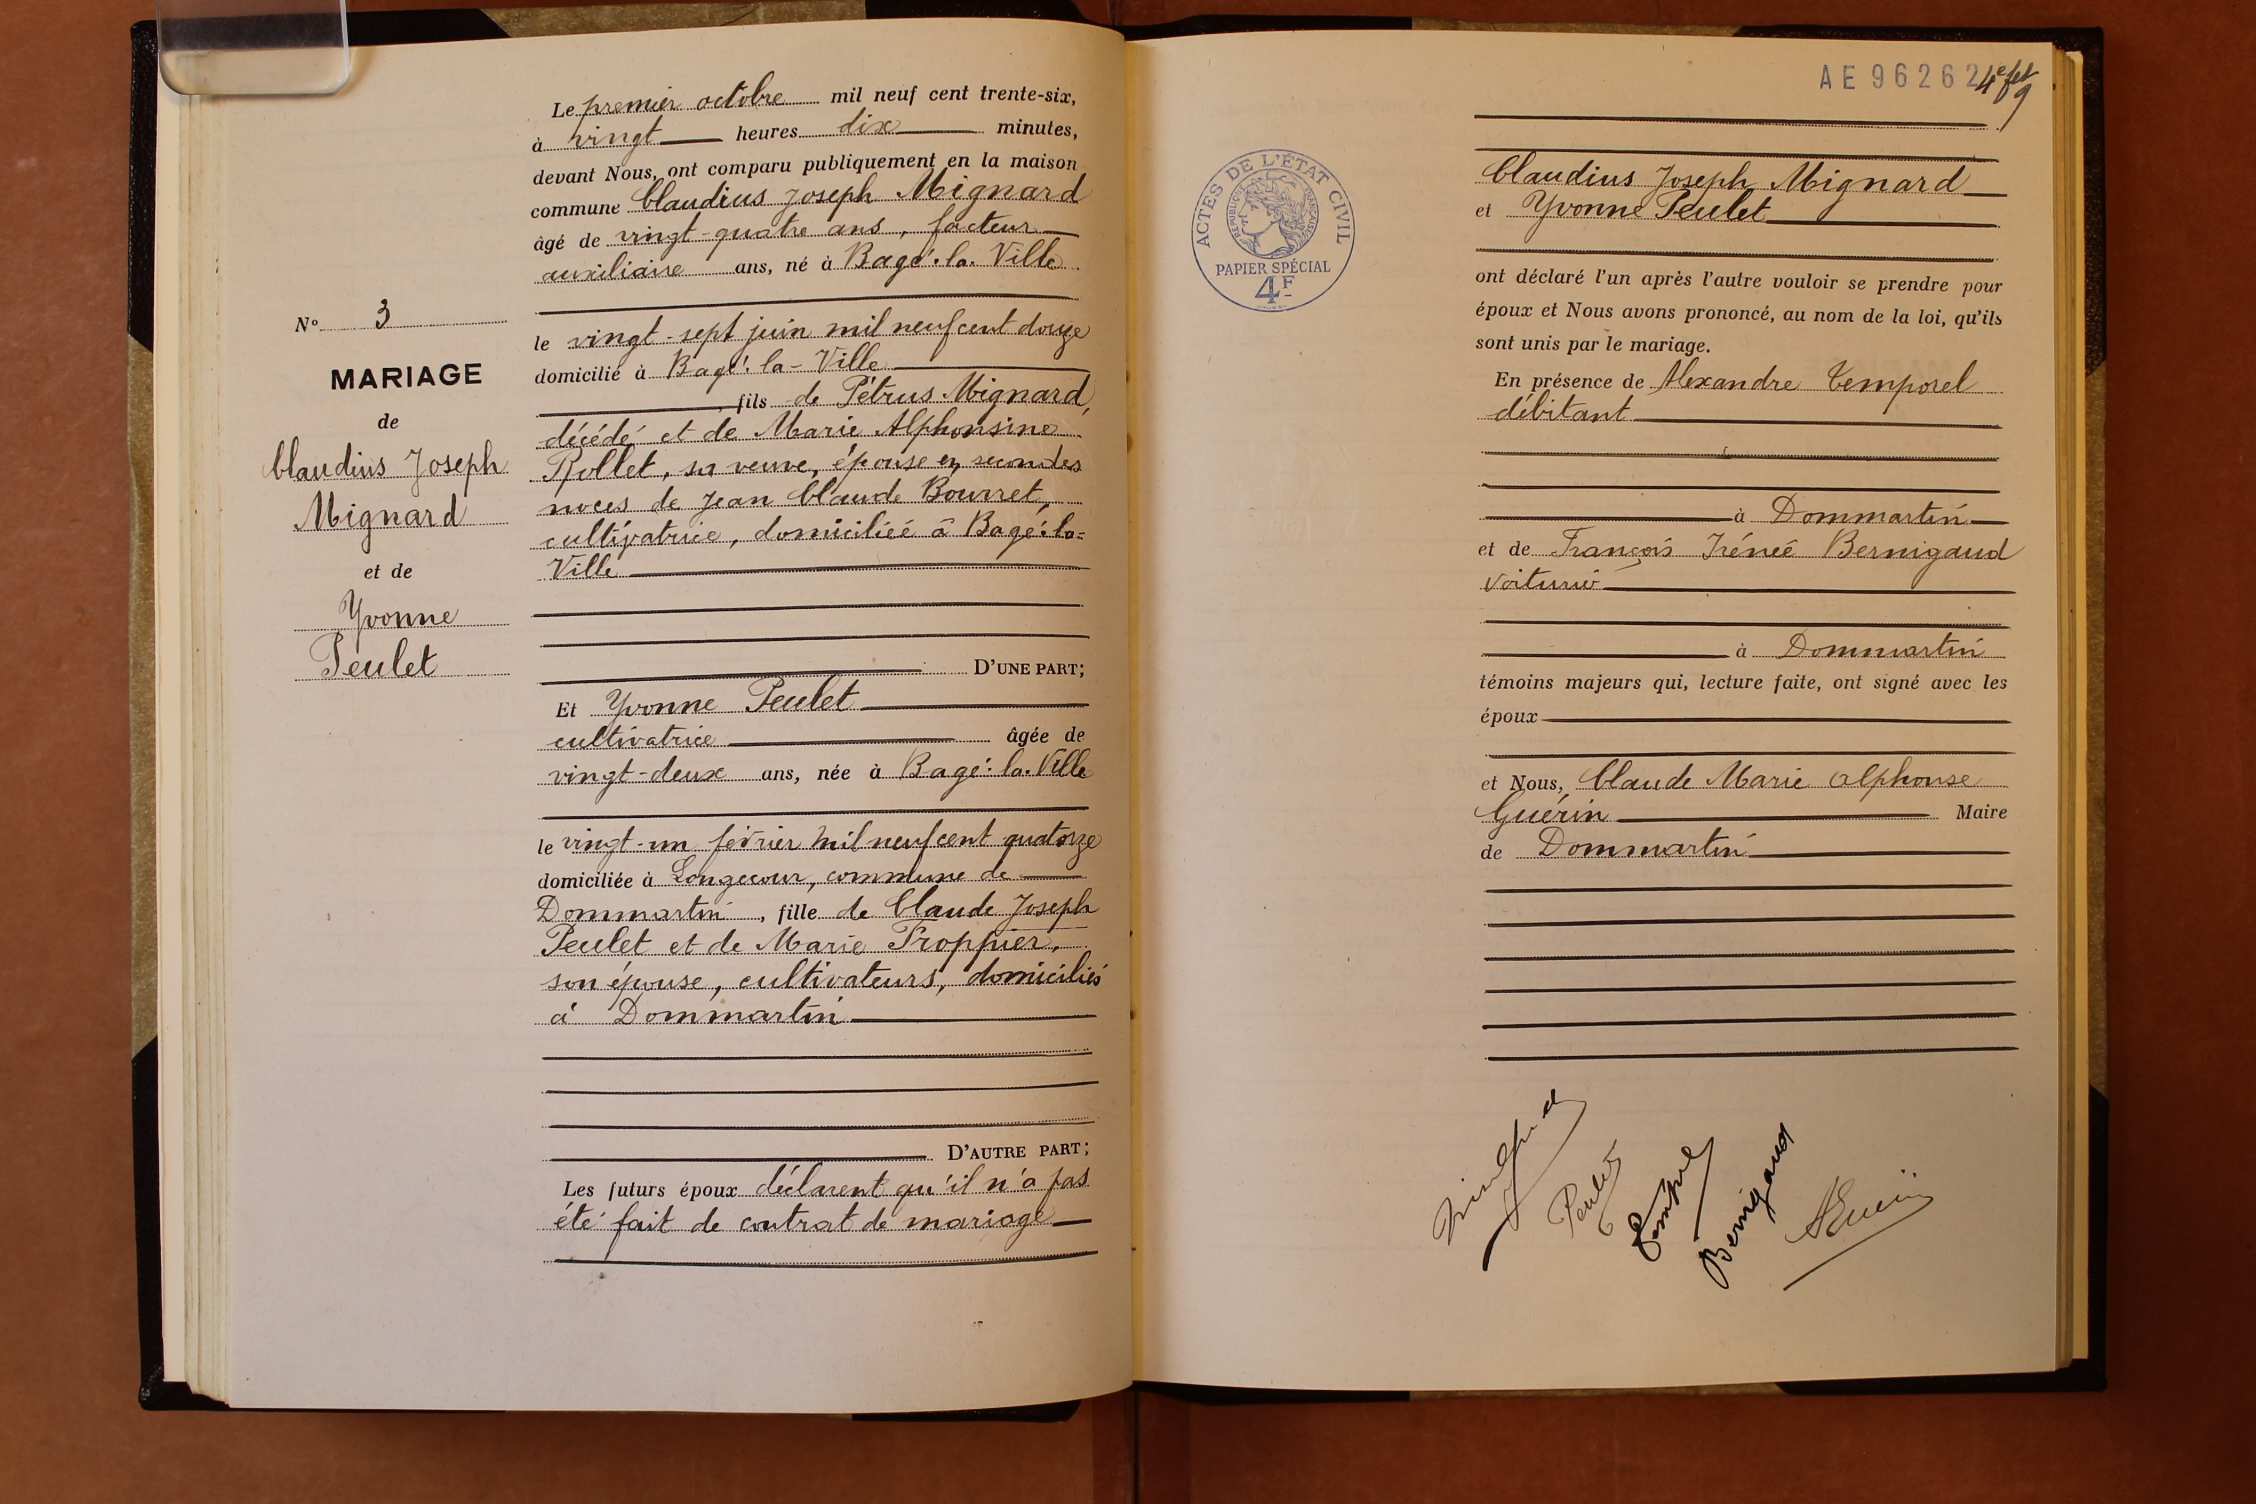 Le premier octobre mil neuf cent trente-six,
à vingt heures dix minutes,
devant Nous, ont comparu publiquement en la maison
commune Claudius Joseph Mignard
âgé de vingt-quatre ans, facteur
auxiliaire ans, né à Bagé-la-Ville
le vingt-sept juin mil neuf cent douze
domicilié à Bagé-la-Ville
, fils de Pétrus Mignard,
décédé et de Marie Alphonsine
Rollet, sa veuve, épouse en secondes
noces de Jean Claude Bourret,
cultivatrice, domiciliée à Bagé-la-
Ville
D'UNE PART;
Et Yvonne Peulet
cultivatrice âgée de
vingt-deux ans, née à Bagé-la-Ville
le vingt-un février mil neuf cent quatorze
domiciliée à Longecour, commune de
Dommartin, fille de Claude Joseph
Peulet et de Marie Froppier,
son épouse, cultivateurs, domiciliés
à Dommartin
D'AUTRE PART;
Les futurs époux déclarent qu'il n'a pas
été fait de contrat de mariage
No 3
MARIAGE
de
Claudius Joseph
Mignard
et de
Yvonne
Peulet
AE 96262
ACTES DE L'ÉTAT CIVIL
RÉPUBLIQUE FRANÇAISE
PAPIER SPÉCIAL
4F
Claudius Joseph Mignard
et Yvonne Peulet
ont déclaré l'un après l'autre vouloir se prendre pour
époux et Nous avons prononcé, au nom de la loi, qu'ils
sont unis par le mariage.
En présence de Alexandre Temporel
débitant
à Dommartin
et de François Irénée Bernigaud
voiturier
à Dommartin
témoins majeurs qui, lecture faite, ont signé avec les
époux
et Nous, Claude Marie Alphonse
Guérin Maire
de Dommartin
Peulet
Bernigaud